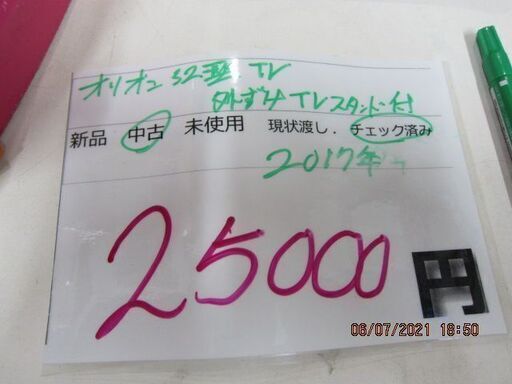 オリオン 32型 TV
TVスタンド付
新品 中古 未使用 現状渡し．チェック済み
2017年
25000円
06/07/2021 18:50